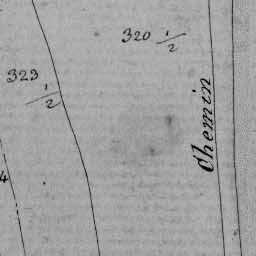 320 1/2
323 1/2
Chemin
4